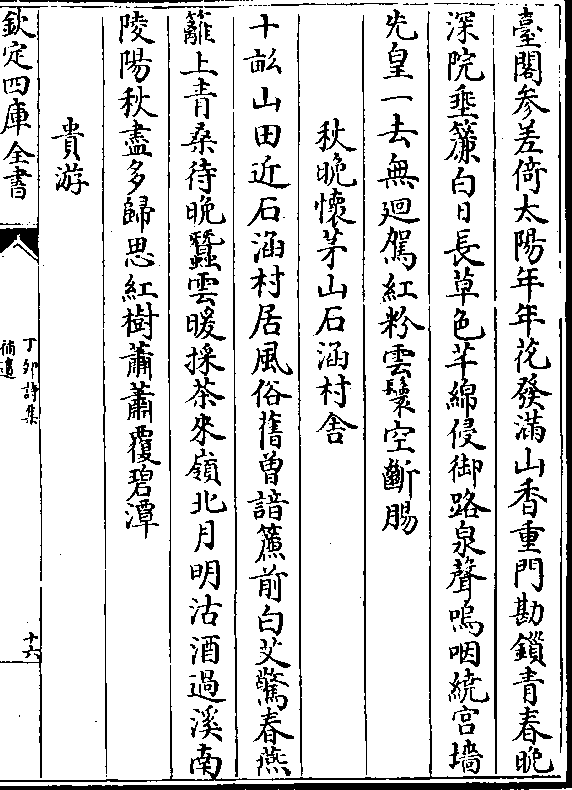 臺閣參差倚太陽年年花發滿山香重門勘鎖青春晚
深院垂簾白日長草色芊綿侵御路泉聲嗚咽繞宮墻
先皇一去無廻駕紅粉雲鬟空斷腸
秋晚懷茅山石涵村舍
十畝山田近石涵村居風俗舊曾諳簾前白艾驚春燕
籬上青桑待晚蠶雲暖採茶來嶺北月明沽酒過溪南
陵陽秋盡多歸思紅樹蕭蕭覆碧潭
貴游
欽定四庫全書
丁卯詩集
補遺
十六